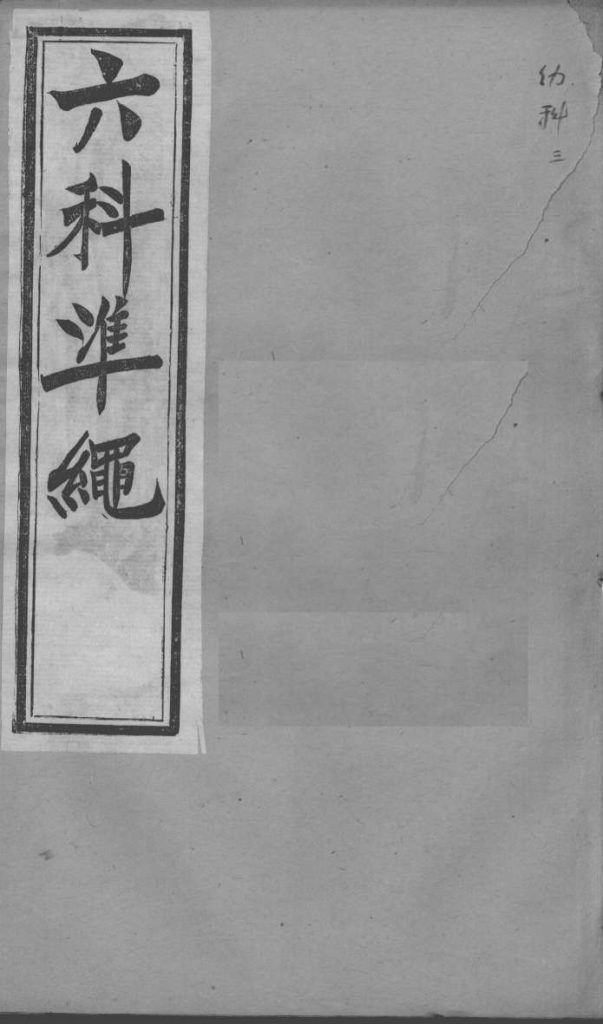 幼科三
六科準繩